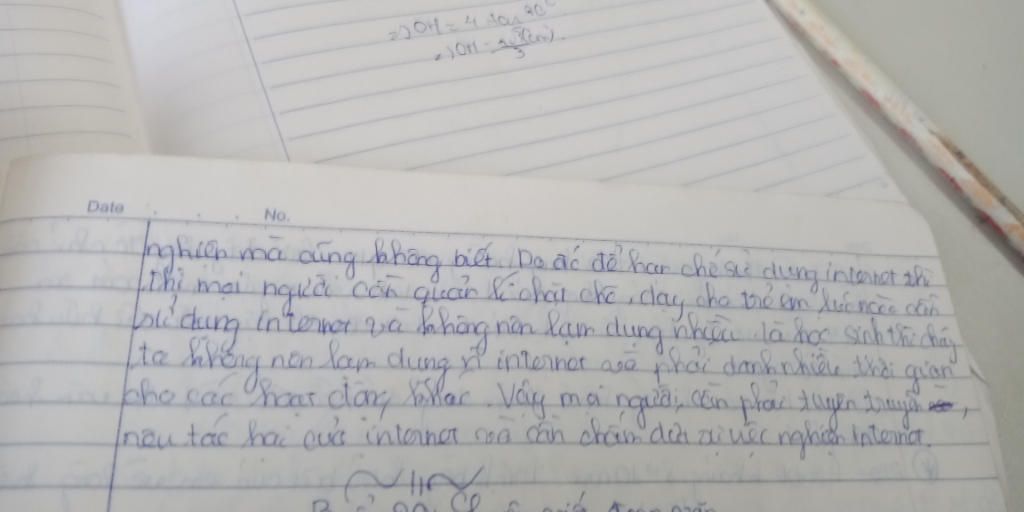 =) OH = 4 tan 30°
=) OH = (cm).
3
Date No.
nghiện mà cũng không biết. Do đó để hạn chế sử dụng internet thì
thì mọi người cần quản lí chặt chẽ, dạy cho trẻ em lúc nào cần
sử dụng internet và không nên lạm dụng nhiều. là học sinh thì chúng
ta không nên lạm dụng internet mà phải dành nhiều thời gian
cho các hoạt động khác. Vậy mọi người cần phải tuyên truyền,
nêu tác hại của internet và cần chấm dứt việc nghiện internet.